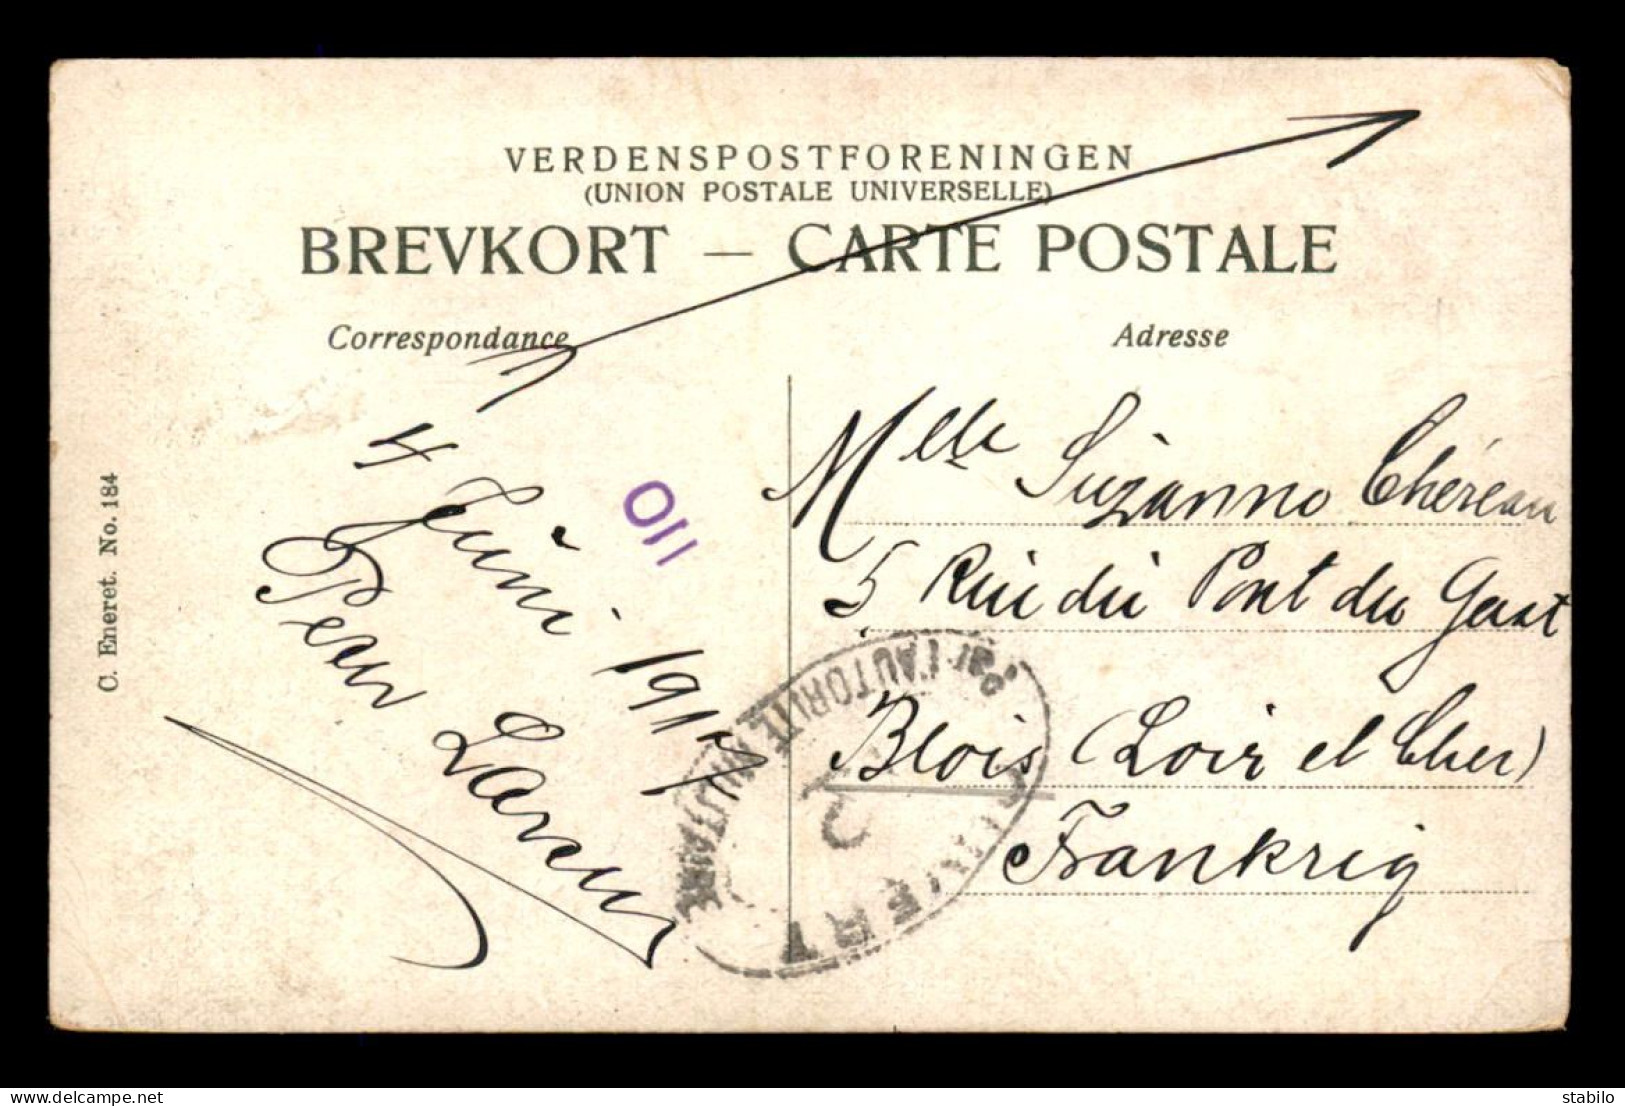 VERDENSPOSTFORENINGEN
(UNION POSTALE UNIVERSELLE)
BREVKORT — CARTE POSTALE
Correspondance
Adresse
4 Juin 1917
Mlle Suzanne Chéreau
5 Rue du Pont du Gast
Blois (Loir et Cher)
Frankrig
110
OUVERT
Par L'AUTORITÉ MILITAIRE
C. Eneret. No. 184
delcampe.net
stabilo